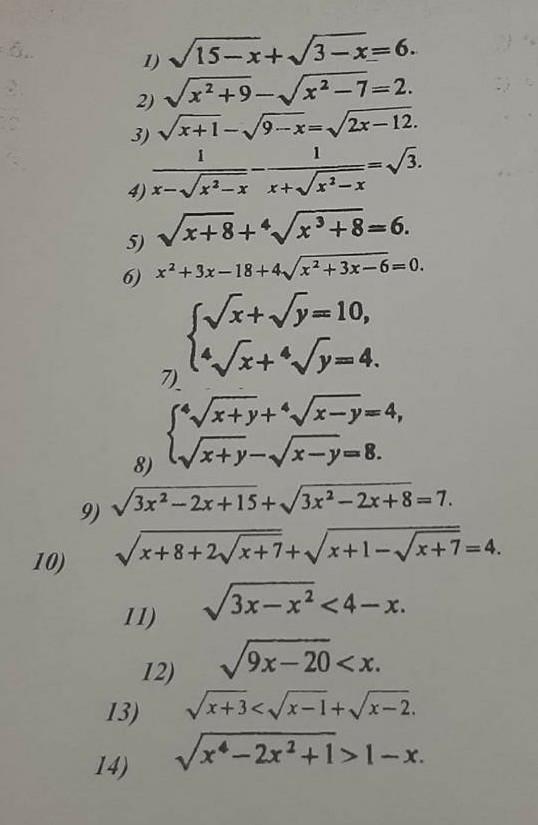 1) √(15−x)+√(3−x)=6.
2) √(x²+9)−√(x²−7)=2.
3) √(x+1)−√(9−x)=√(2x−12).
4) 1/(x−√(x²−x)) − 1/(x+√(x²−x)) =√3.
5) √(x+8)+⁴√(x³+8)=6.
6) x²+3x−18+4√(x²+3x−6)=0.
{√x+√y=10,
7) ⁴√x+⁴√y=4.
{⁴√(x+y)+⁴√(x−y)=4,
8) √(x+y)−√(x−y)=8.
9) √(3x²−2x+15)+√(3x²−2x+8)=7.
10) √(x+8+2√(x+7))+√(x+1−√(x+7))=4.
11) √(3x−x²)<4−x.
12) √(9x−20)<x.
13) √(x+3)<√(x−1)+√(x−2).
14) √(x⁴−2x²+1)>1−x.